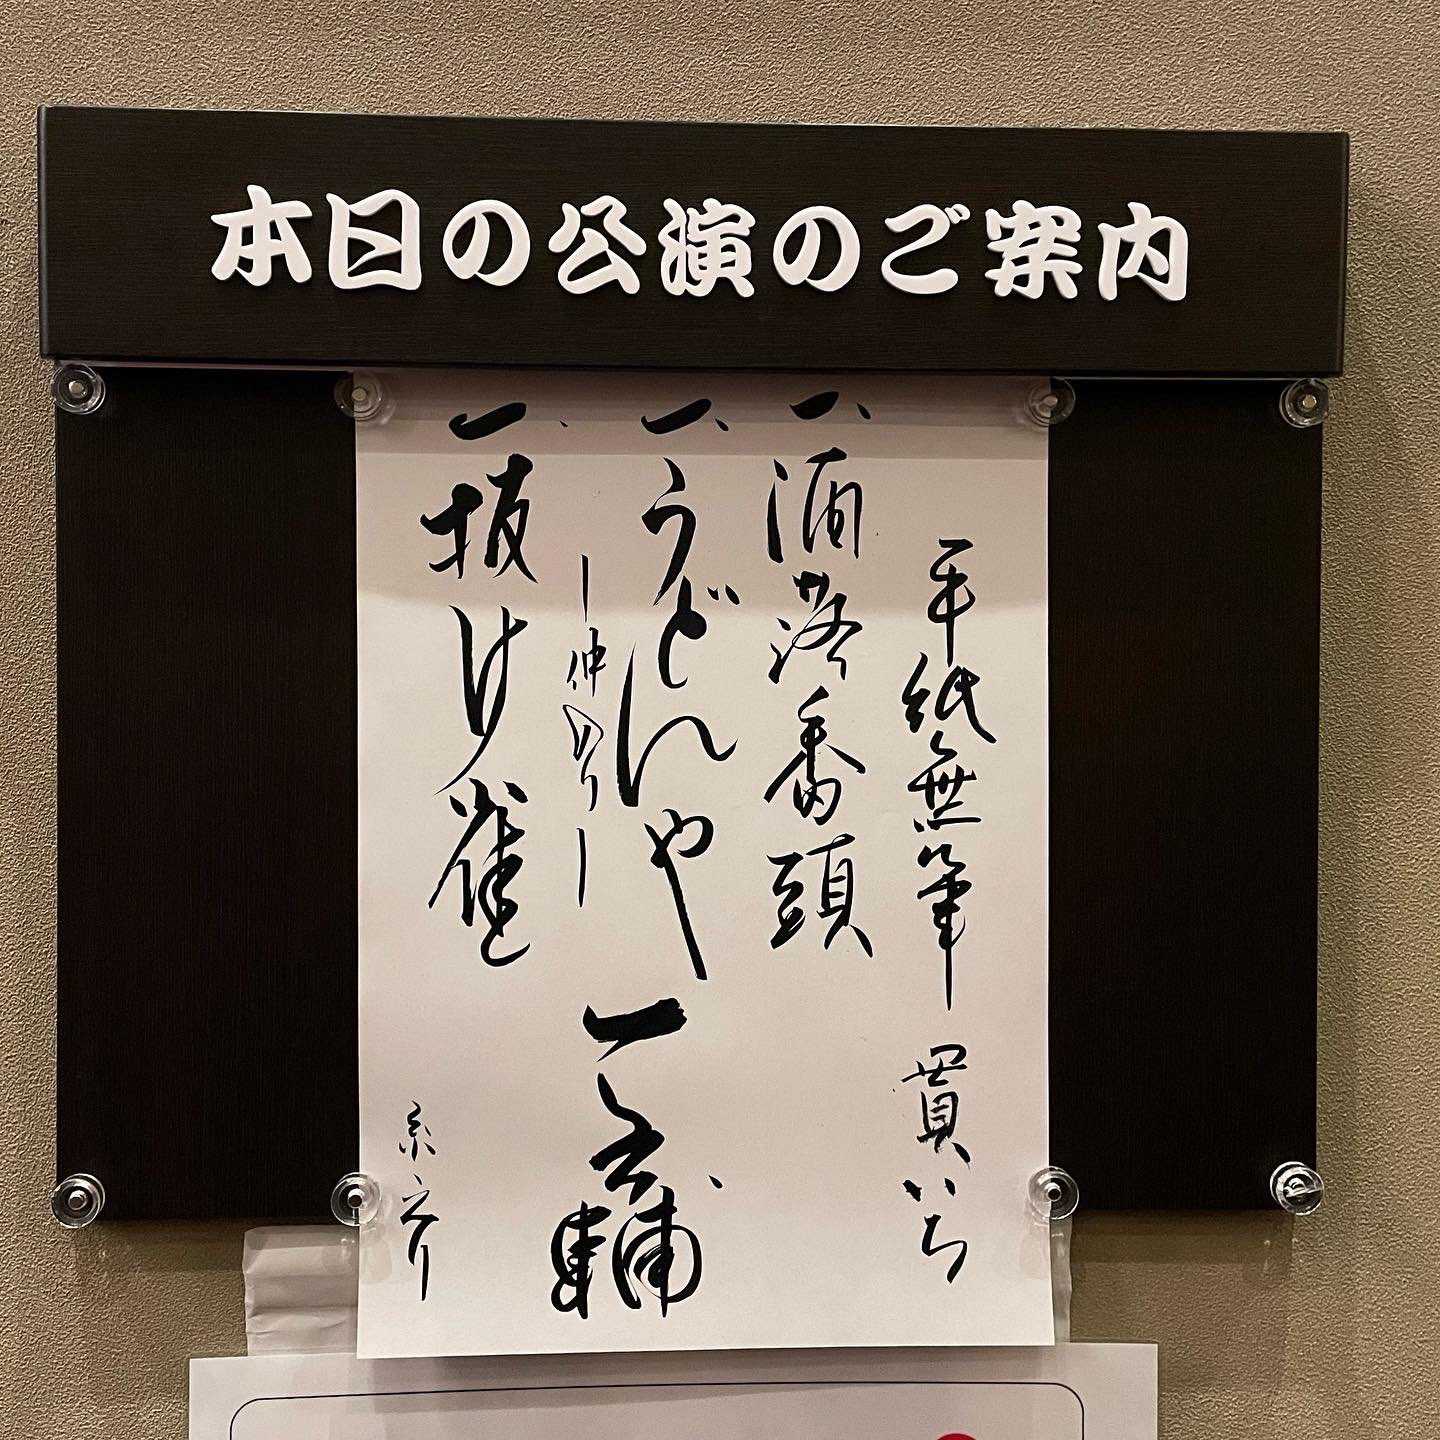 本日の公演のご案内
手紙無筆 貫いち
一、洒落番頭
一、うどんや
―仲入り―
一、抜け雀
一之輔